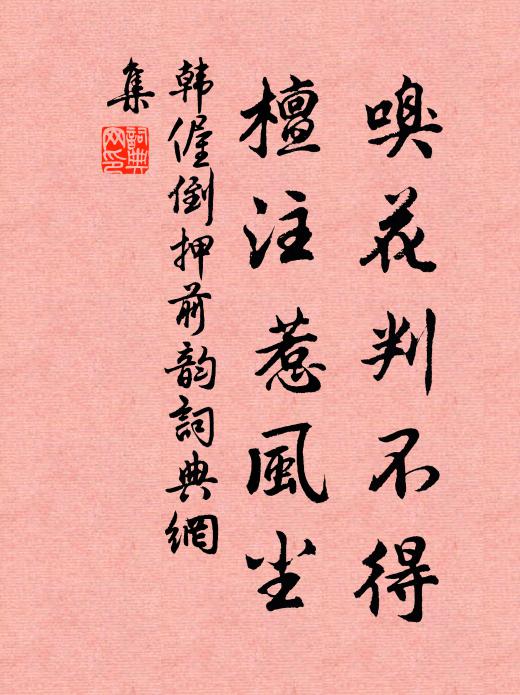 嗅花判不得
檀注惹風尘
韩偓倒押前韵詞典網
集
詞典网印